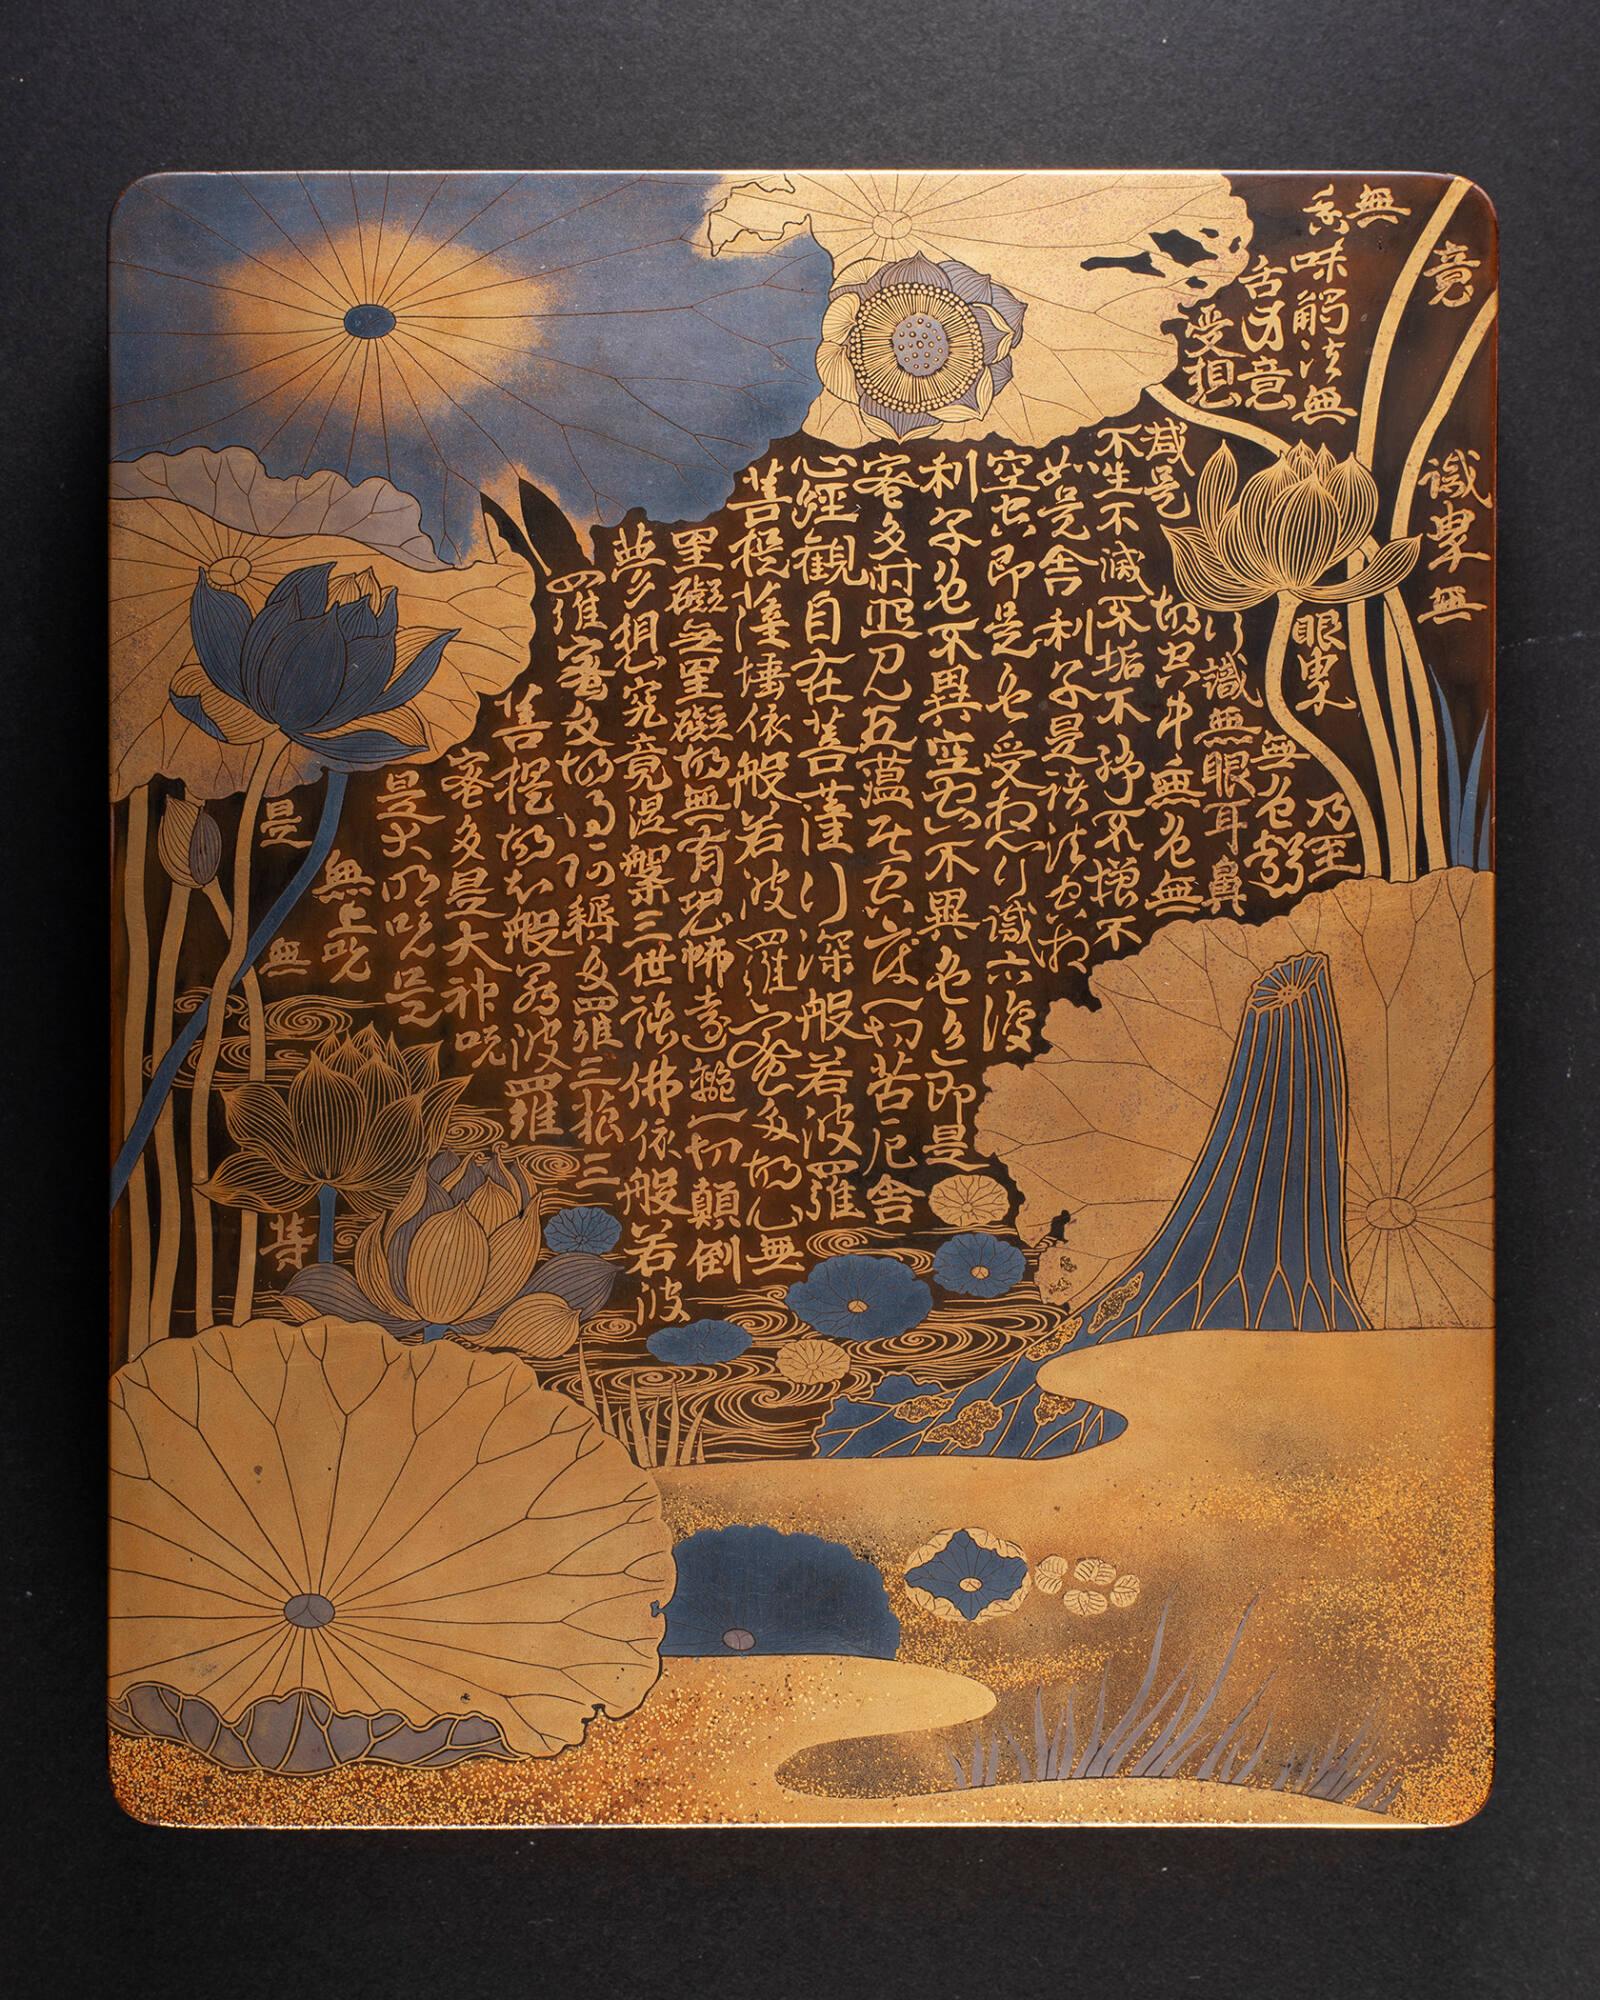 心経観自在菩薩行深般若波羅
蜜多時照見五蘊皆空度一切苦厄舎
利子色不異空空不異色色即是
空空即是色受想行識亦復
如是舎利子是諸法空相
不生不滅不垢不浄不増不
減是故空中無色無
受想行識無眼耳鼻
舌身意無色聲
香味觸法無眼界乃至
無
意識界無
菩提薩埵依般若波羅蜜多故心無
罣礙無罣礙故無有恐怖遠離一切顛倒
夢想究竟涅槃三世諸佛依般若波
羅蜜多故得阿耨多羅三藐三
菩提故知般若波羅
蜜多是大神呪
是大明呪是
無上呪
是無等